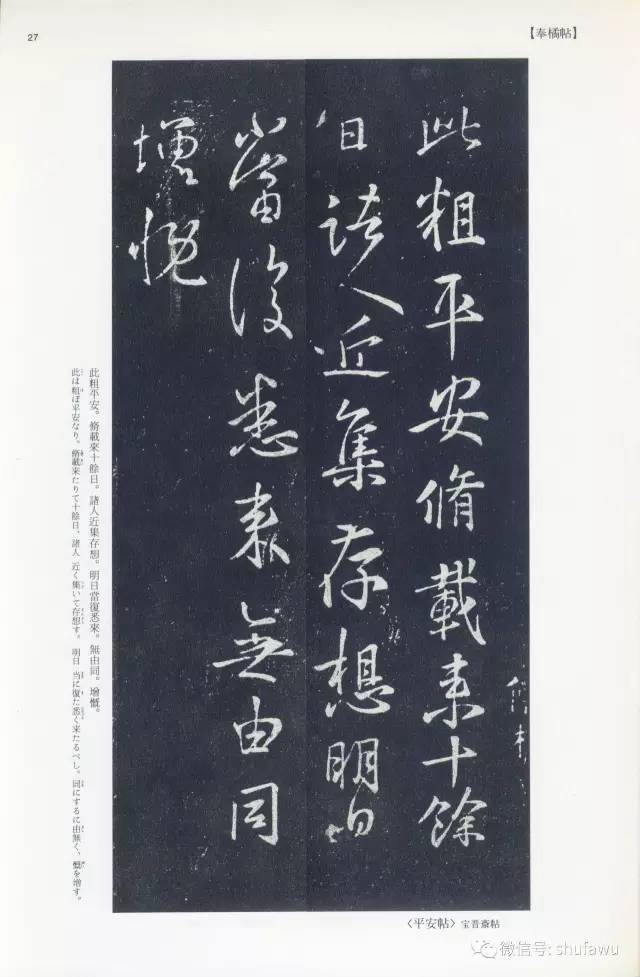 27
【奉橘帖】
此粗平安脩載来十餘
日諸人近集存想明日
當復悉来無由同
増慨
僧权
此粗平安。脩載來十餘日。諸人近集存想。明日當復悉來。無由同。増慨。
此は粗ぼ平安なり。脩載来たりて十餘日、諸人 近く集いて存想す。 明日 当に復た悉く来たるべし。同にするに由無く、慨を増す。
〈平安帖〉宝晋斎帖
微信号: shufawu